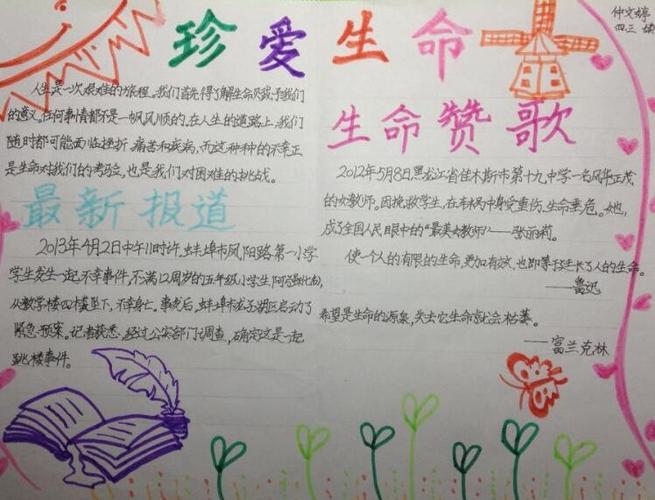 珍爱生命
仲文婷
四三班
人生是一次艰难的旅程。我们首先得了解生命赋予我们
的意义。任何事情都不是一帆风顺的,在人生的道路上,我们
随时都可能面临挫折、痛苦和疾病,而这种种的不幸正
是生命对我们的考验,也是我们对困难的挑战。
最新报道
2013年4月2日中午11时许,蚌埠市凤阳路第一小学
学生发生一起不幸事件,不满12周岁的五年级小学生阿乃(化名)
从教学楼四楼坠下,不幸身亡。事发后,蚌埠市龙子湖区启动了
紧急预案。记者获悉,经过公安部门调查,确定这是一起
跳楼事件。
生命赞歌
2012年5月8日,黑龙江省佳木斯市第十九中学一名风华正茂
的女教师。因挽救学生,在车祸中身受重伤,生命垂危。她,
成了全国人民眼中的“最美女教师”——张丽莉。
使一个人的有限的生命,更加有效,也即等于延长了人的生命。
——鲁迅
希望是生命的源泉,失去它生命就会枯萎。
——富兰克林